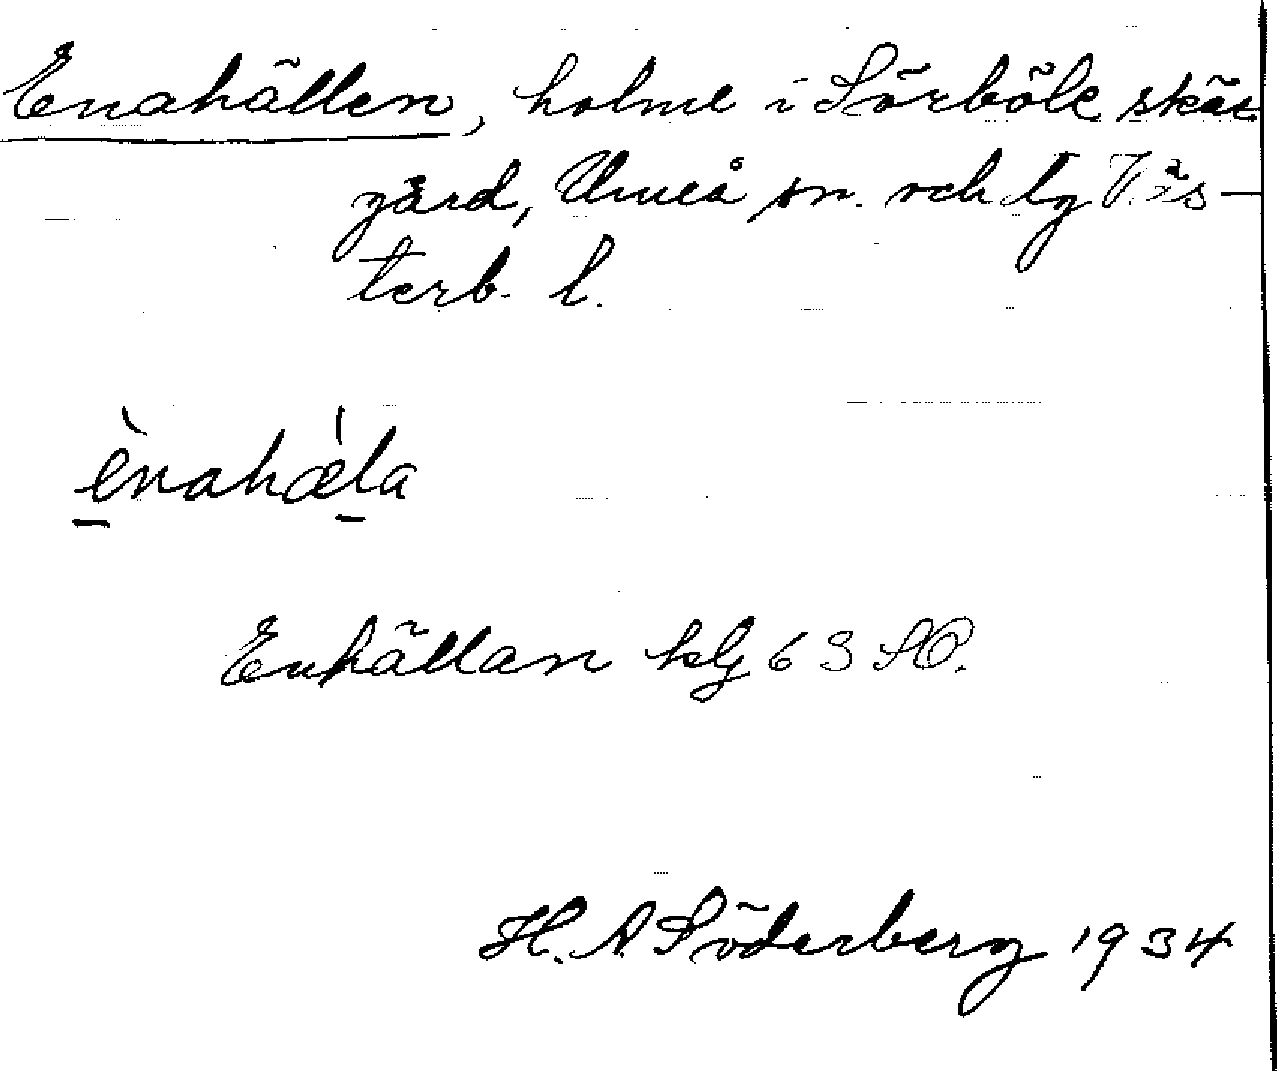 Enahällen, holme i Sörböle skär
gård, Umeå sn. och lg Väs-
terb. l.
ènahæ̀la
Enhällan kbl 63 SO.
H. A Söderberg 1934